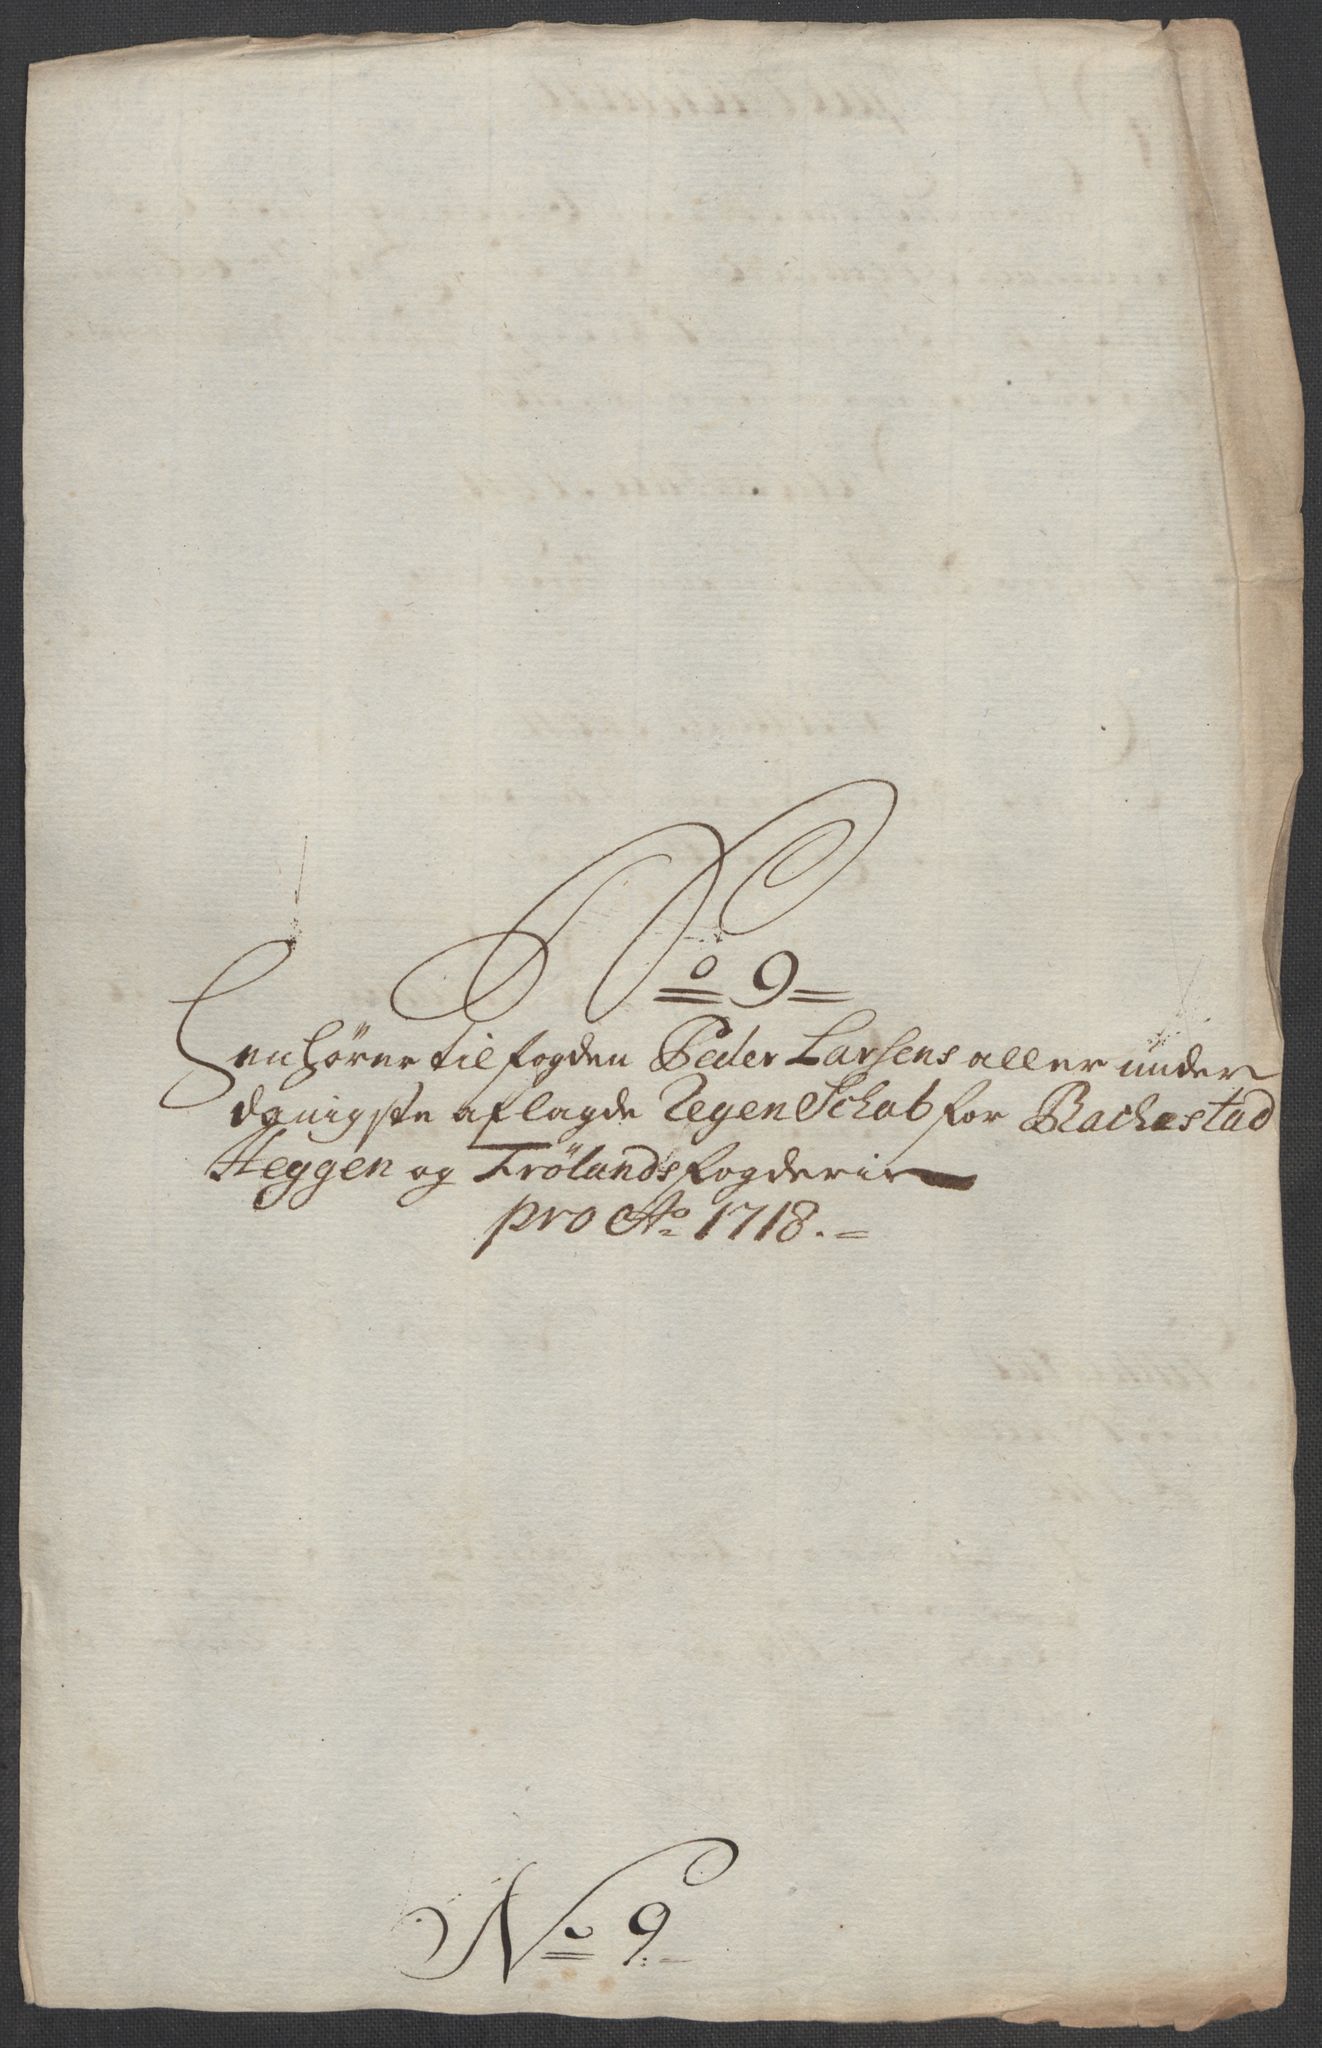 No 9
Henhörer til fogden Peder Larsens aller under
danigste aflagde Regen Schab for Rachestad
Heggen og Frölands fogderie
pro Ao 1718.
No 9